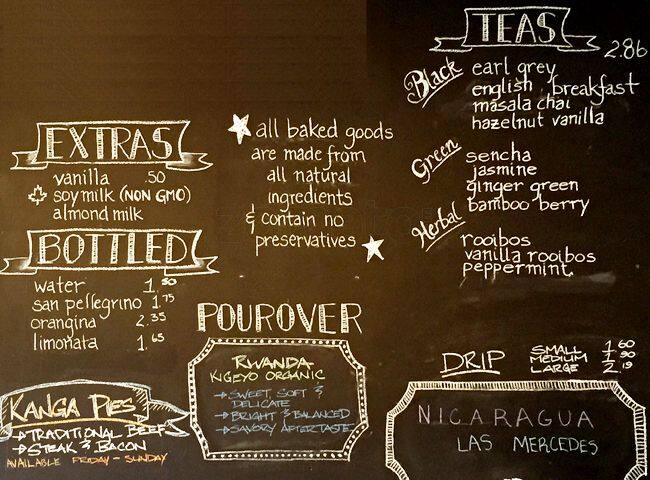 EXTRAS
vanilla .50
soy milk (NON GMO)
almond milk
BOTTLED
water 1.50
san pellegrino 1.75
orangina 2.35
limonata 1.65
KANGA PIES
→TRADITIONAL BEEF
→STEAK & BACON
AVAILABLE FRIDAY - SUNDAY
all baked goods
are made from
all natural
ingredients
& contain no
preservatives
POUROVER
RWANDA
KIGEYO ORGANIC
→SWEET, SOFT &
DELICATE
→BRIGHT & BALANCED
→SAVORY AFTERTASTE
TEAS
2.86
Black
earl grey
english breakfast
masala chai
hazelnut vanilla
Green
sencha
jasmine
ginger green
bamboo berry
Herbal
rooibos
vanilla rooibos
peppermint
DRIP
SMALL 1.60
MEDIUM 1.90
LARGE 2.19
NICARAGUA
LAS MERCEDES